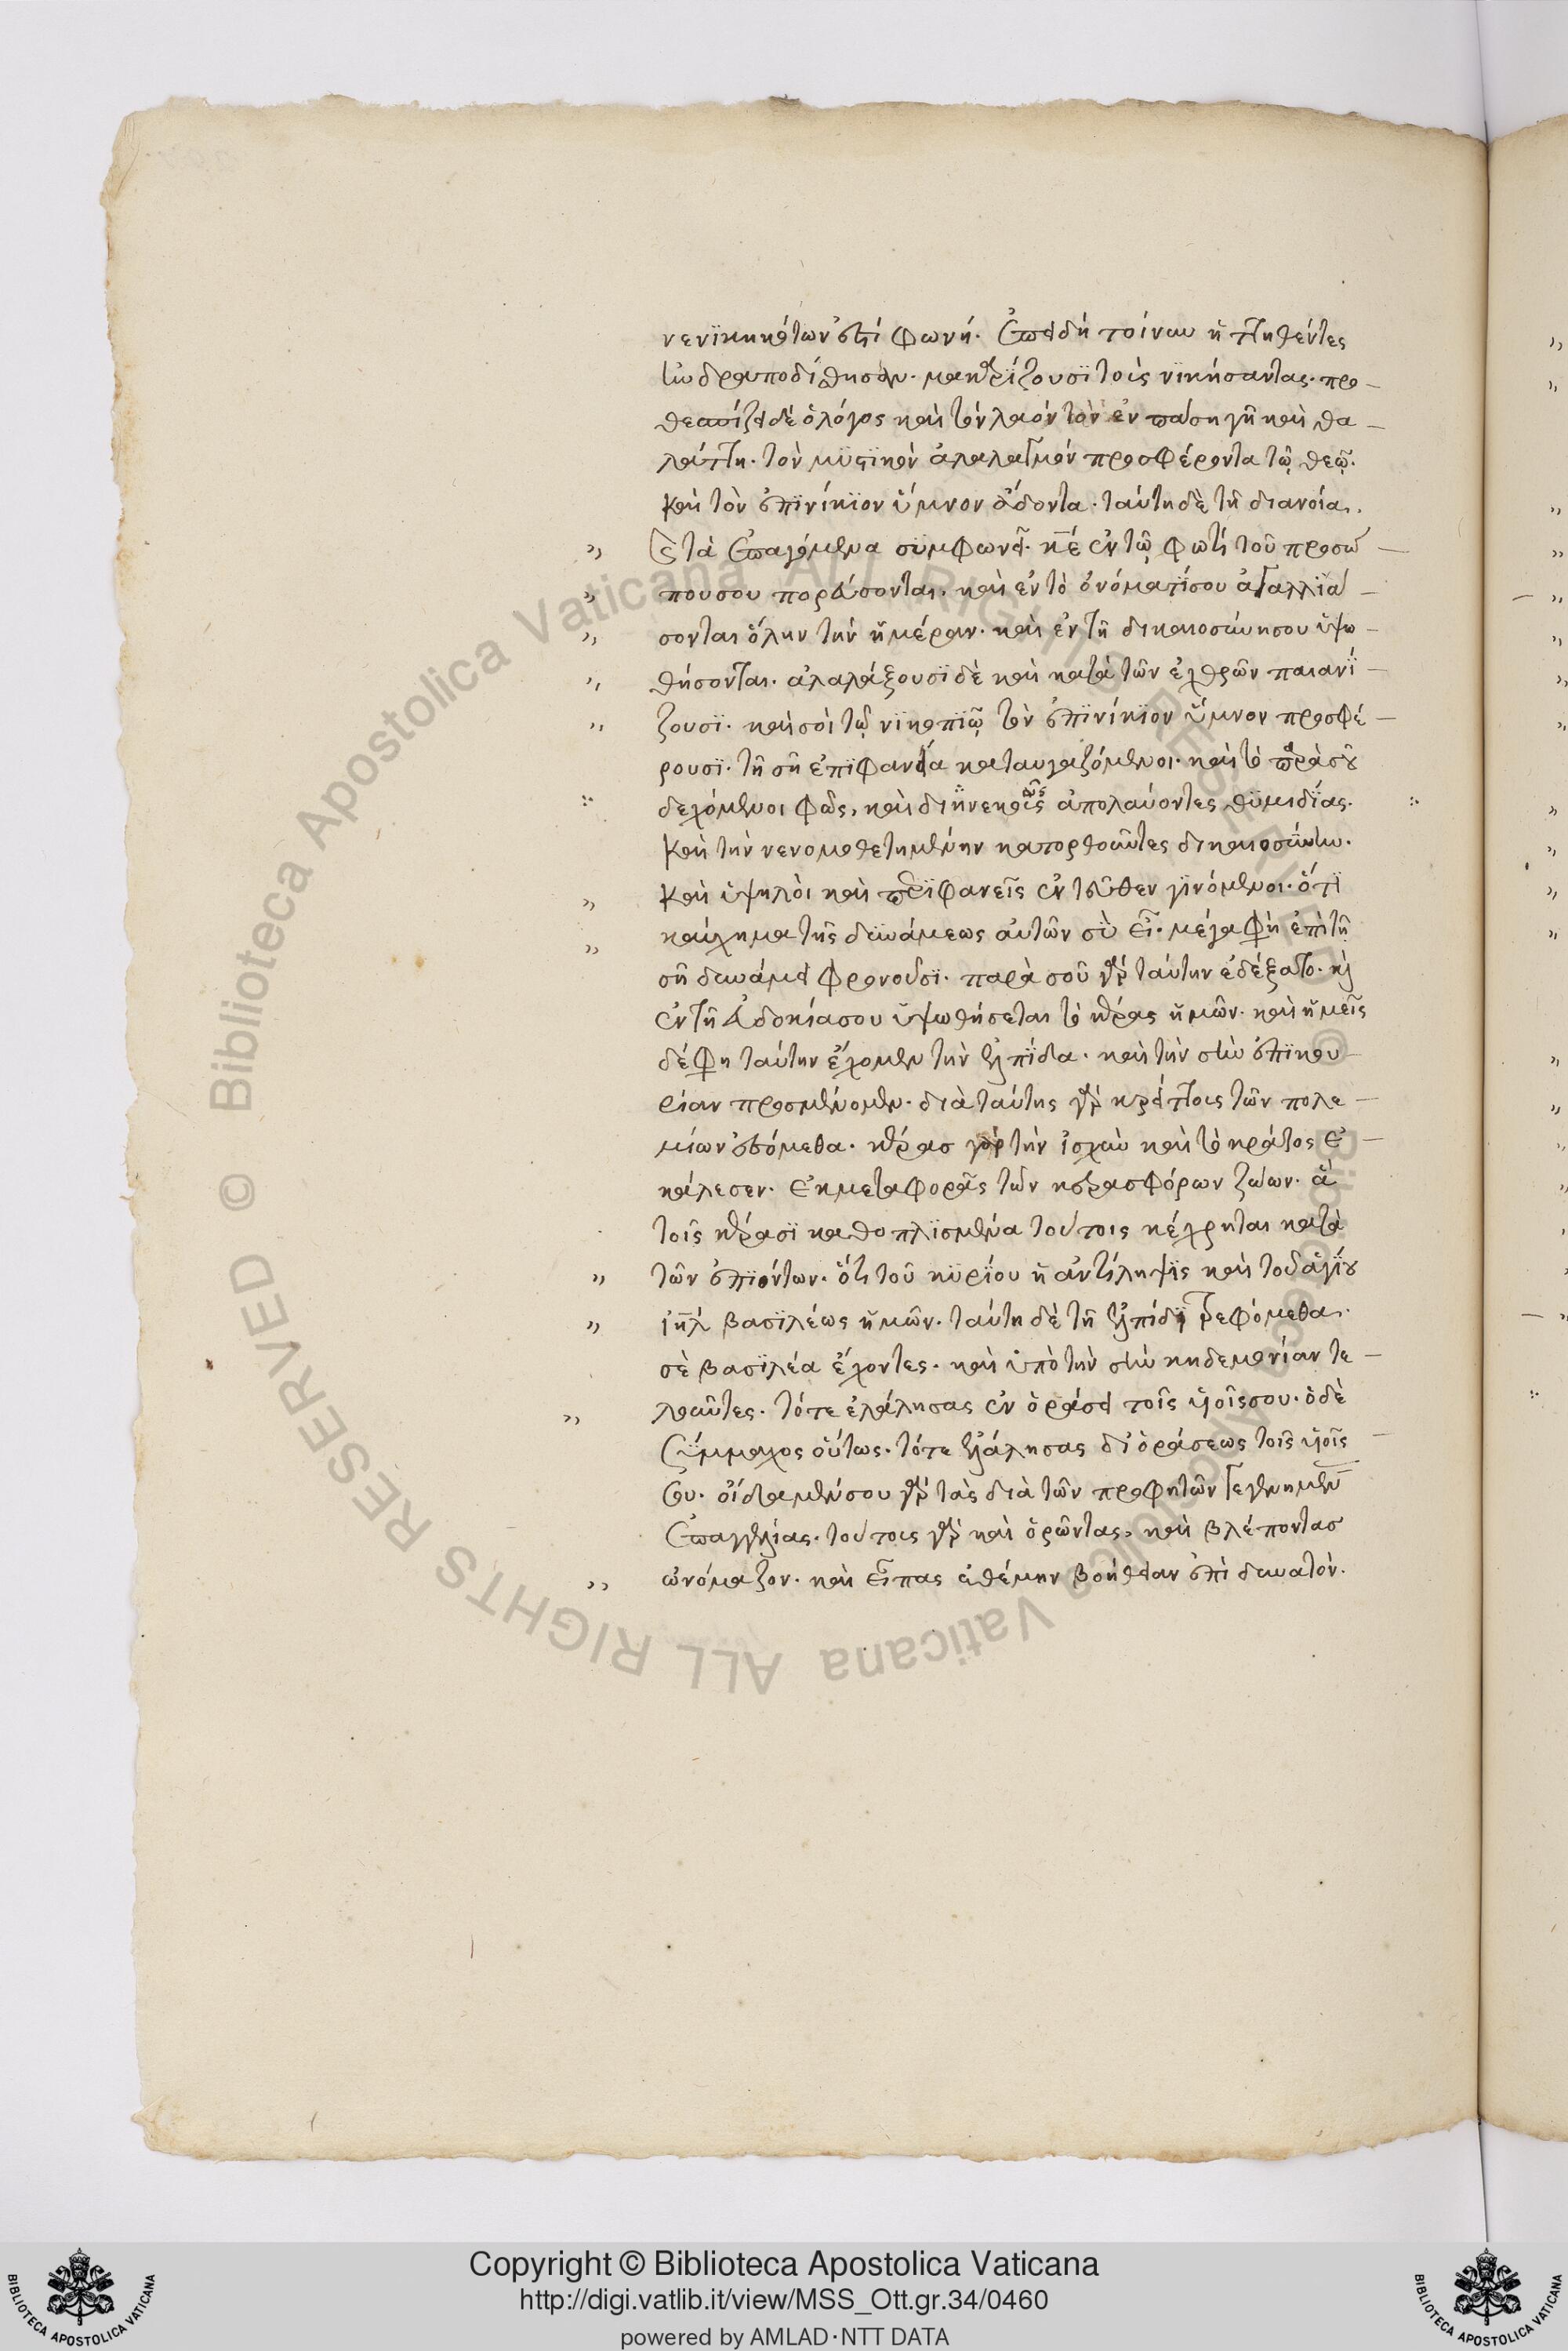 νενϊκηκότων ἐστί φωνή. ἐπειδή τοίνυν ἡττηθέντες
ἠνδραποδίσθησαν. μακαρίζουσϊ τοὺς νϊκήσαντας. προ
θεσπίζει δέ ὁ λόγος καὶ τὸν λαόν τὸν ἐν πάσῃ γῆ καὶ θα
λάττη. τὸν μϋστϊκὸν ἀλαλαγμόν προσφέροντα τῷ θεῷ.
καὶ τὸν ἐπϊνίκϊον ὕμνον ἄδοντα. ταύτη δὲ τῆ διανοία.
καὶ τὰ ἐπαγόμενα συμφωνεῖ. κ̅ε̅ ἐν τῷ φωτί τοῦ προσώ
που σου πορεύσονται. καὶ ἐν τὸ ὀνόματί σου ἀγαλλϊά
σονται ὅλην τὴν ἡμέραν. καὶ ἐν τῆ δικαιοσύνη σου ὑψω
θήσονται. ἀλαλάξουσϊ δὲ καὶ κατὰ τῶν ἐχθρῶν παιανΐ
ζουσϊ. καὶ σοὶ τῷ νϊκοπιῷ τὸν ἐπϊνίκϊον ὕμνον προσφέ
ρουσϊ. τῆ σῆ ἐπϊφανεία καταυγαζόμενοι. καὶ τὸ παρὰ σοῦ
δεχόμενοι φῶς, καὶ διηνεκοῦς ἀπολαύοντες θϋμιδίας.
καὶ τὴν νενομοθετημένην κατορθοῦντες δικαιοσύνην.
καὶ ὑψηλοὶ καὶ περϊφανεῖς ἐντεῦθεν γϊνόμενοι. ὅτϊ
καύχημα τῆς δυνάμεως αὐτῶν σὺ εἶ. μέγα φησὶ ἐπὶ τῆ
σῆ δυνάμει φρονοῦσϊ. παρὰ σοῦ γὰρ ταύτην ἐδέξατο. καὶ
ἐν τῆ εὐδοκία σου ὑψωθήσεται τὸ κέρας ἡμῶν. καὶ ἡμεῖς
δέ φησι ταύτην ἔχομεν τὴν ἐλπΐδα. καὶ τὴν σὴν ἐπϊκου
ρίαν προσμένομεν. διὰ ταύτης γὰρ κρείττους τῶν πολε
μίων ἐσόμεθα. κέρασ γὰρ τὴν ἰσχὺν καὶ τὸ κράτος ἐ
κάλεσεν. ἐκ μεταφορᾶς τῶν κερασφόρων ζώων. ἃ
τοῖς κέρασϊ καθοπλϊσμένα τούτοις κέχρηται κατὰ
τῶν ἐπϊόντων. ὅτι τοῦ κϋρίου ἡ ἀντίληψϊς καὶ τοῦ ἁγΐου
ἰη̅λ βασϊλέως ἡμῶν. ταύτη δὲ τῆ ἐλπίδϊ τρεφόμεθα.
σὲ βασϊλέα ἔχοντες. καὶ ὑπὸ τὴν σὴν κηδεμονίαν τε
λοῦντες. τότε ἐλάλησας ἐν ὁράσει τοῖς υἱοῖς σου. ὁ δὲ
σύμμαχος οὕτως. τότε ἐλάλησας δι' ὁράσεως τοῖς υἱοῖς
σου. οἶδα μέν σου γὰρ τὰς διὰ τῶν προφητῶν γεγενημέν
ἐπαγγελίας. τούτους γὰρ καὶ ὁρῶντας, καὶ βλέποντασ
ὠνόμαζον. καὶ εἶπας ἐθέμην βοήθειαν ἐπὶ δυνατόν.
Copyright © Biblioteca Apostolica Vaticana
http://digi.vatlib.it/view/MSS_Ott.gr.34/0460
powered by AMLAD·NTT DATA